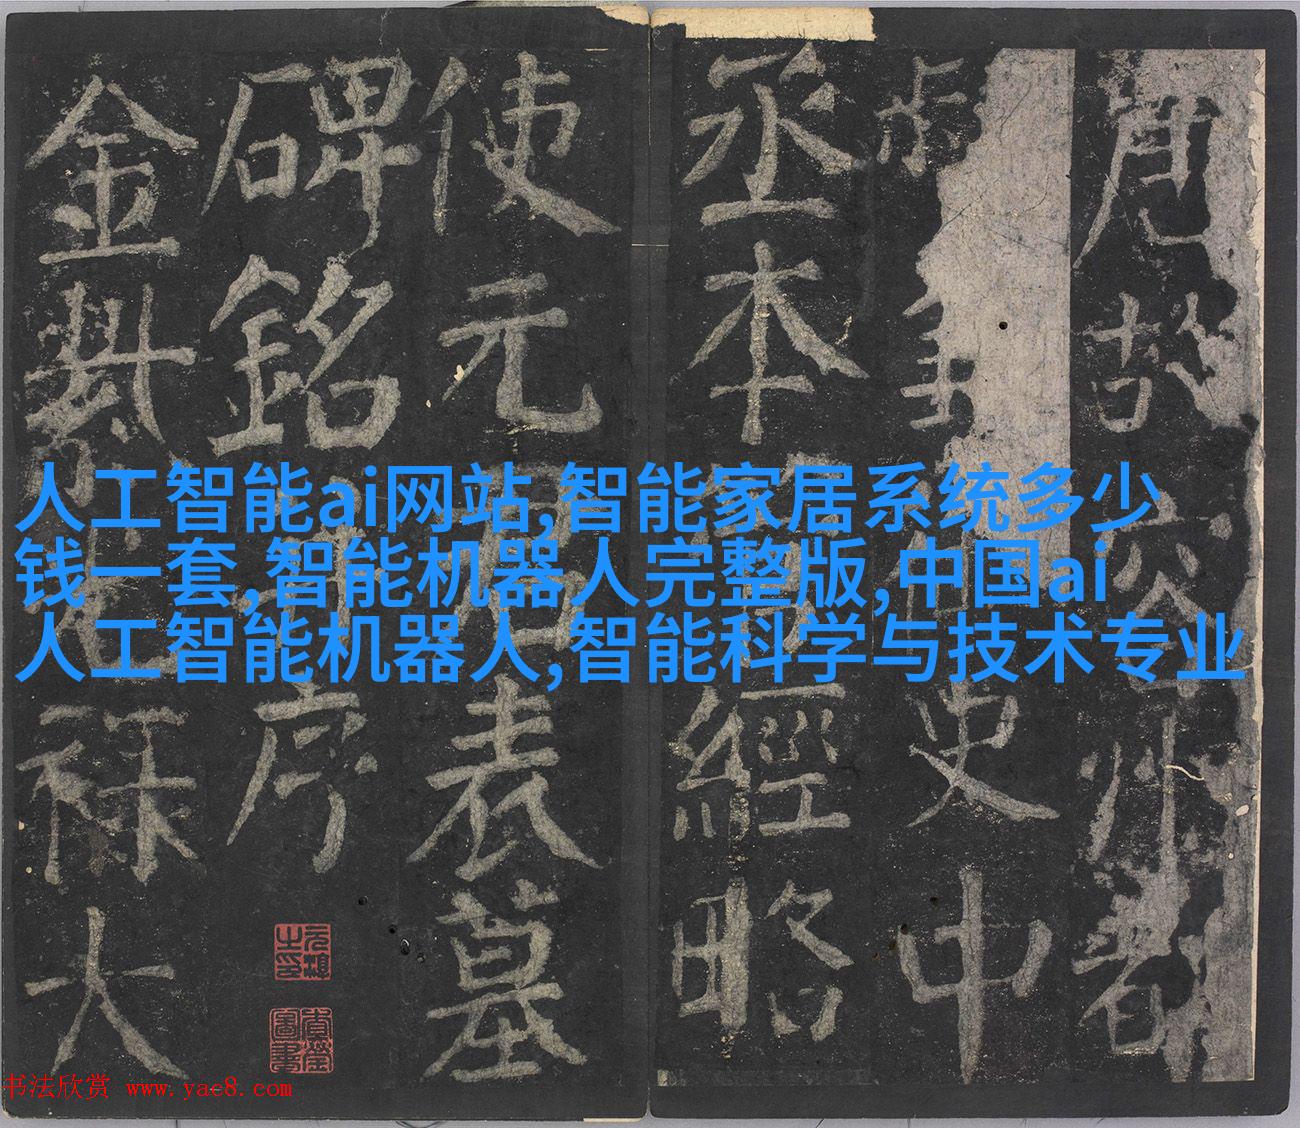 唐故容州都
史中
丞本管經略
使元君表墓
碑銘并序
金紫光祿大
人工智能ai网站,智能家居系统多少
钱一套,智能机器人完整版,中国ai
人工智能机器人,智能科学与技术专业
书法欣赏 www.yac8.com